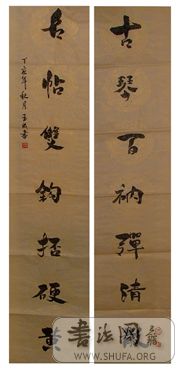 古琴百衲彈清
名帖雙鉤搨硬黃
丁亥年秋月
书法网
WWW.SHUFA.ORG